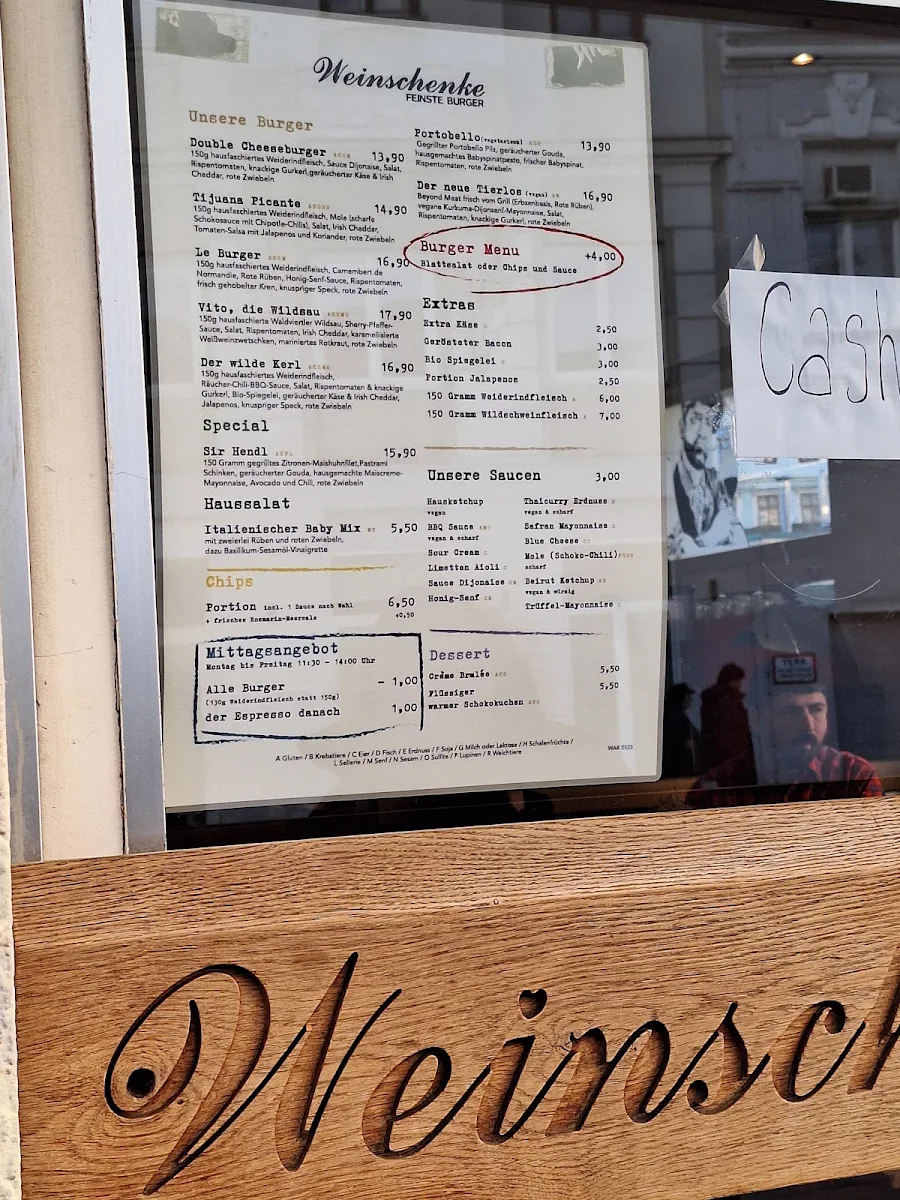 Weinschenke
FEINSTE BURGER
Unsere Burger
Double Cheeseburger 13,90
150g hausfaschiertes Weiderindfleisch, Sauce Dijonaise, Salat,
Rispentomaten, knackige Gurkerl,geräucherter Käse & Irish
Cheddar, rote Zwiebeln
Tijuana Picante 14,90
150g hausfaschiertes Weiderindfleisch, Mole (scharfe
Schokosauce mit Chipotle-Chilis), Salat, Irish Cheddar,
Tomaten-Salsa mit Jalapenos und Koriander, rote Zwiebeln
Le Burger 16,90
150g hausfaschiertes Weiderindfleisch, Camembert de
Normandie, Rote Rüben, Honig-Senf-Sauce, Rispentomaten,
frisch gehobelter Kren, knuspriger Speck, rote Zwiebeln
Vito, die Wildsau 17,90
150g hausfaschierte Waldviertler Wildsau, Sherry-Pfeffer-
Sauce, Salat, Rispentomaten, Irish Cheddar, karamellisierte
Weißweinzwetschken, mariniertes Rotkraut, rote Zwiebeln
Der wilde Kerl 16,90
150g hausfaschiertes Weiderindfleisch,
Räucher-Chili-BBQ-Sauce, Salat, Rispentomaten & knackige
Gurkerl, Bio-Spiegelei, geräucherter Käse & Irish Cheddar,
Jalapenos, knuspriger Speck, rote Zwiebeln
Special
Sir Hendl 15,90
150 Gramm gegrilltes Zitronen-Maishuhnfilet,Pastrami
Schinken, geräucherter Gouda, hausgemachte Maiscreme-
Mayonnaise, Avocado und Chili, rote Zwiebeln
Haussalat
Italienischer Baby Mix 5,50
mit zweierlei Rüben und roten Zwiebeln,
dazu Basilikum-Sesamöl-Vinaigrette
Chips
Portion incl. 1 Sauce nach Wahl 6,50
+ frisches Rosmarin-Meersalz +0,50
Mittagsangebot
Montag bis Freitag 11:30 - 14:00 Uhr
Alle Burger - 1,00
(130g Weiderindfleisch statt 150g)
der Espresso danach 1,00
Portobello(vegetarisch) 13,90
Gegrillter Portobello Pilz, geräucherter Gouda,
hausgemachtes Babyspinatpesto, frischer Babyspinat,
Rispentomaten, rote Zwiebeln
Der neue Tierlos (vegan) 16,90
Beyond Meat frisch vom Grill (Erbsenbasis, Rote Rüben),
vegane Kurkuma-Dijonsenf-Mayonnaise, Salat,
Rispentomaten, knackige Gurkerl, rote Zwiebeln
Burger Menu +4,00
Blattsalat oder Chips und Sauce
Extras
Extra Käse 2,50
Gerösteter Bacon 3,00
Bio Spiegelei 3,00
Portion Jalapenos 2,50
150 Gramm Weiderindfleisch 6,00
150 Gramm Wildschweinfleisch 7,00
Unsere Saucen 3,00
Hausketchup
vegan
BBQ Sauce
vegan & scharf
Sour Cream
Limetten Aioli
Sauce Dijonaise
Honig-Senf
Thaicurry Erdnuss
vegan & scharf
Safran Mayonnaise
Blue Cheese
Mole (Schoko-Chili)
scharf
Beirut Ketchup
vegan & würzig
Trüffel-Mayonnaise
Dessert
Crème Brulée 5,50
Flüssiger 5,50
warmer Schokokuchen
A Gluten / B Krebstiere / C Eier / D Fisch / E Erdnuss / F Soja / G Milch oder Laktose / H Schalenfrüchte /
L Sellerie / M Senf / N Sesam / O Sulfite / P Lupinen / R Weichtiere
WAK 0323
Cash
Weinsch